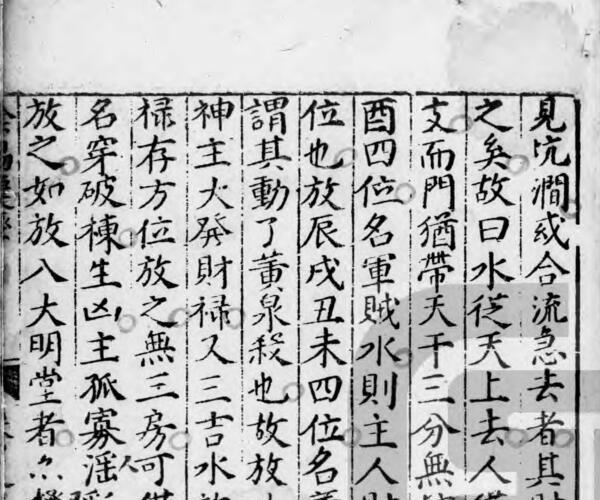 見坑澗或合流急去者其
之矣故曰水從天上去人
支而門猶帶天干三分無
酉四位名軍賊水則主人
位也放辰戌丑未四位名
謂其動了黃泉殺也故放
神主大發財禄又三吉水
禄存方位放之無三房可
名穿破棟生凶主孤寡滛
放之如放八大明堂者